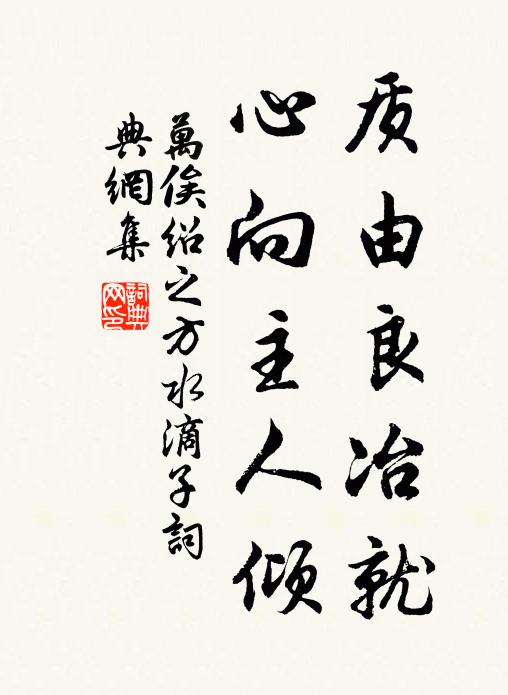 质由良冶就
心向主人倾
萬俟绍之方水滴子詞
典網集
詞典
网印